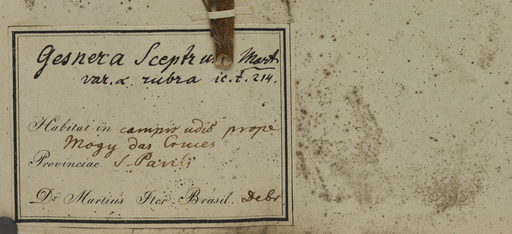 Gesnera Sceptrum Mart.
var. α rubra ic. t. 214.
Habitat in campis udis prope
Mogy das Cruces
Provinciae S. Pauli
Dr Martius Iter Brasil. Debr.